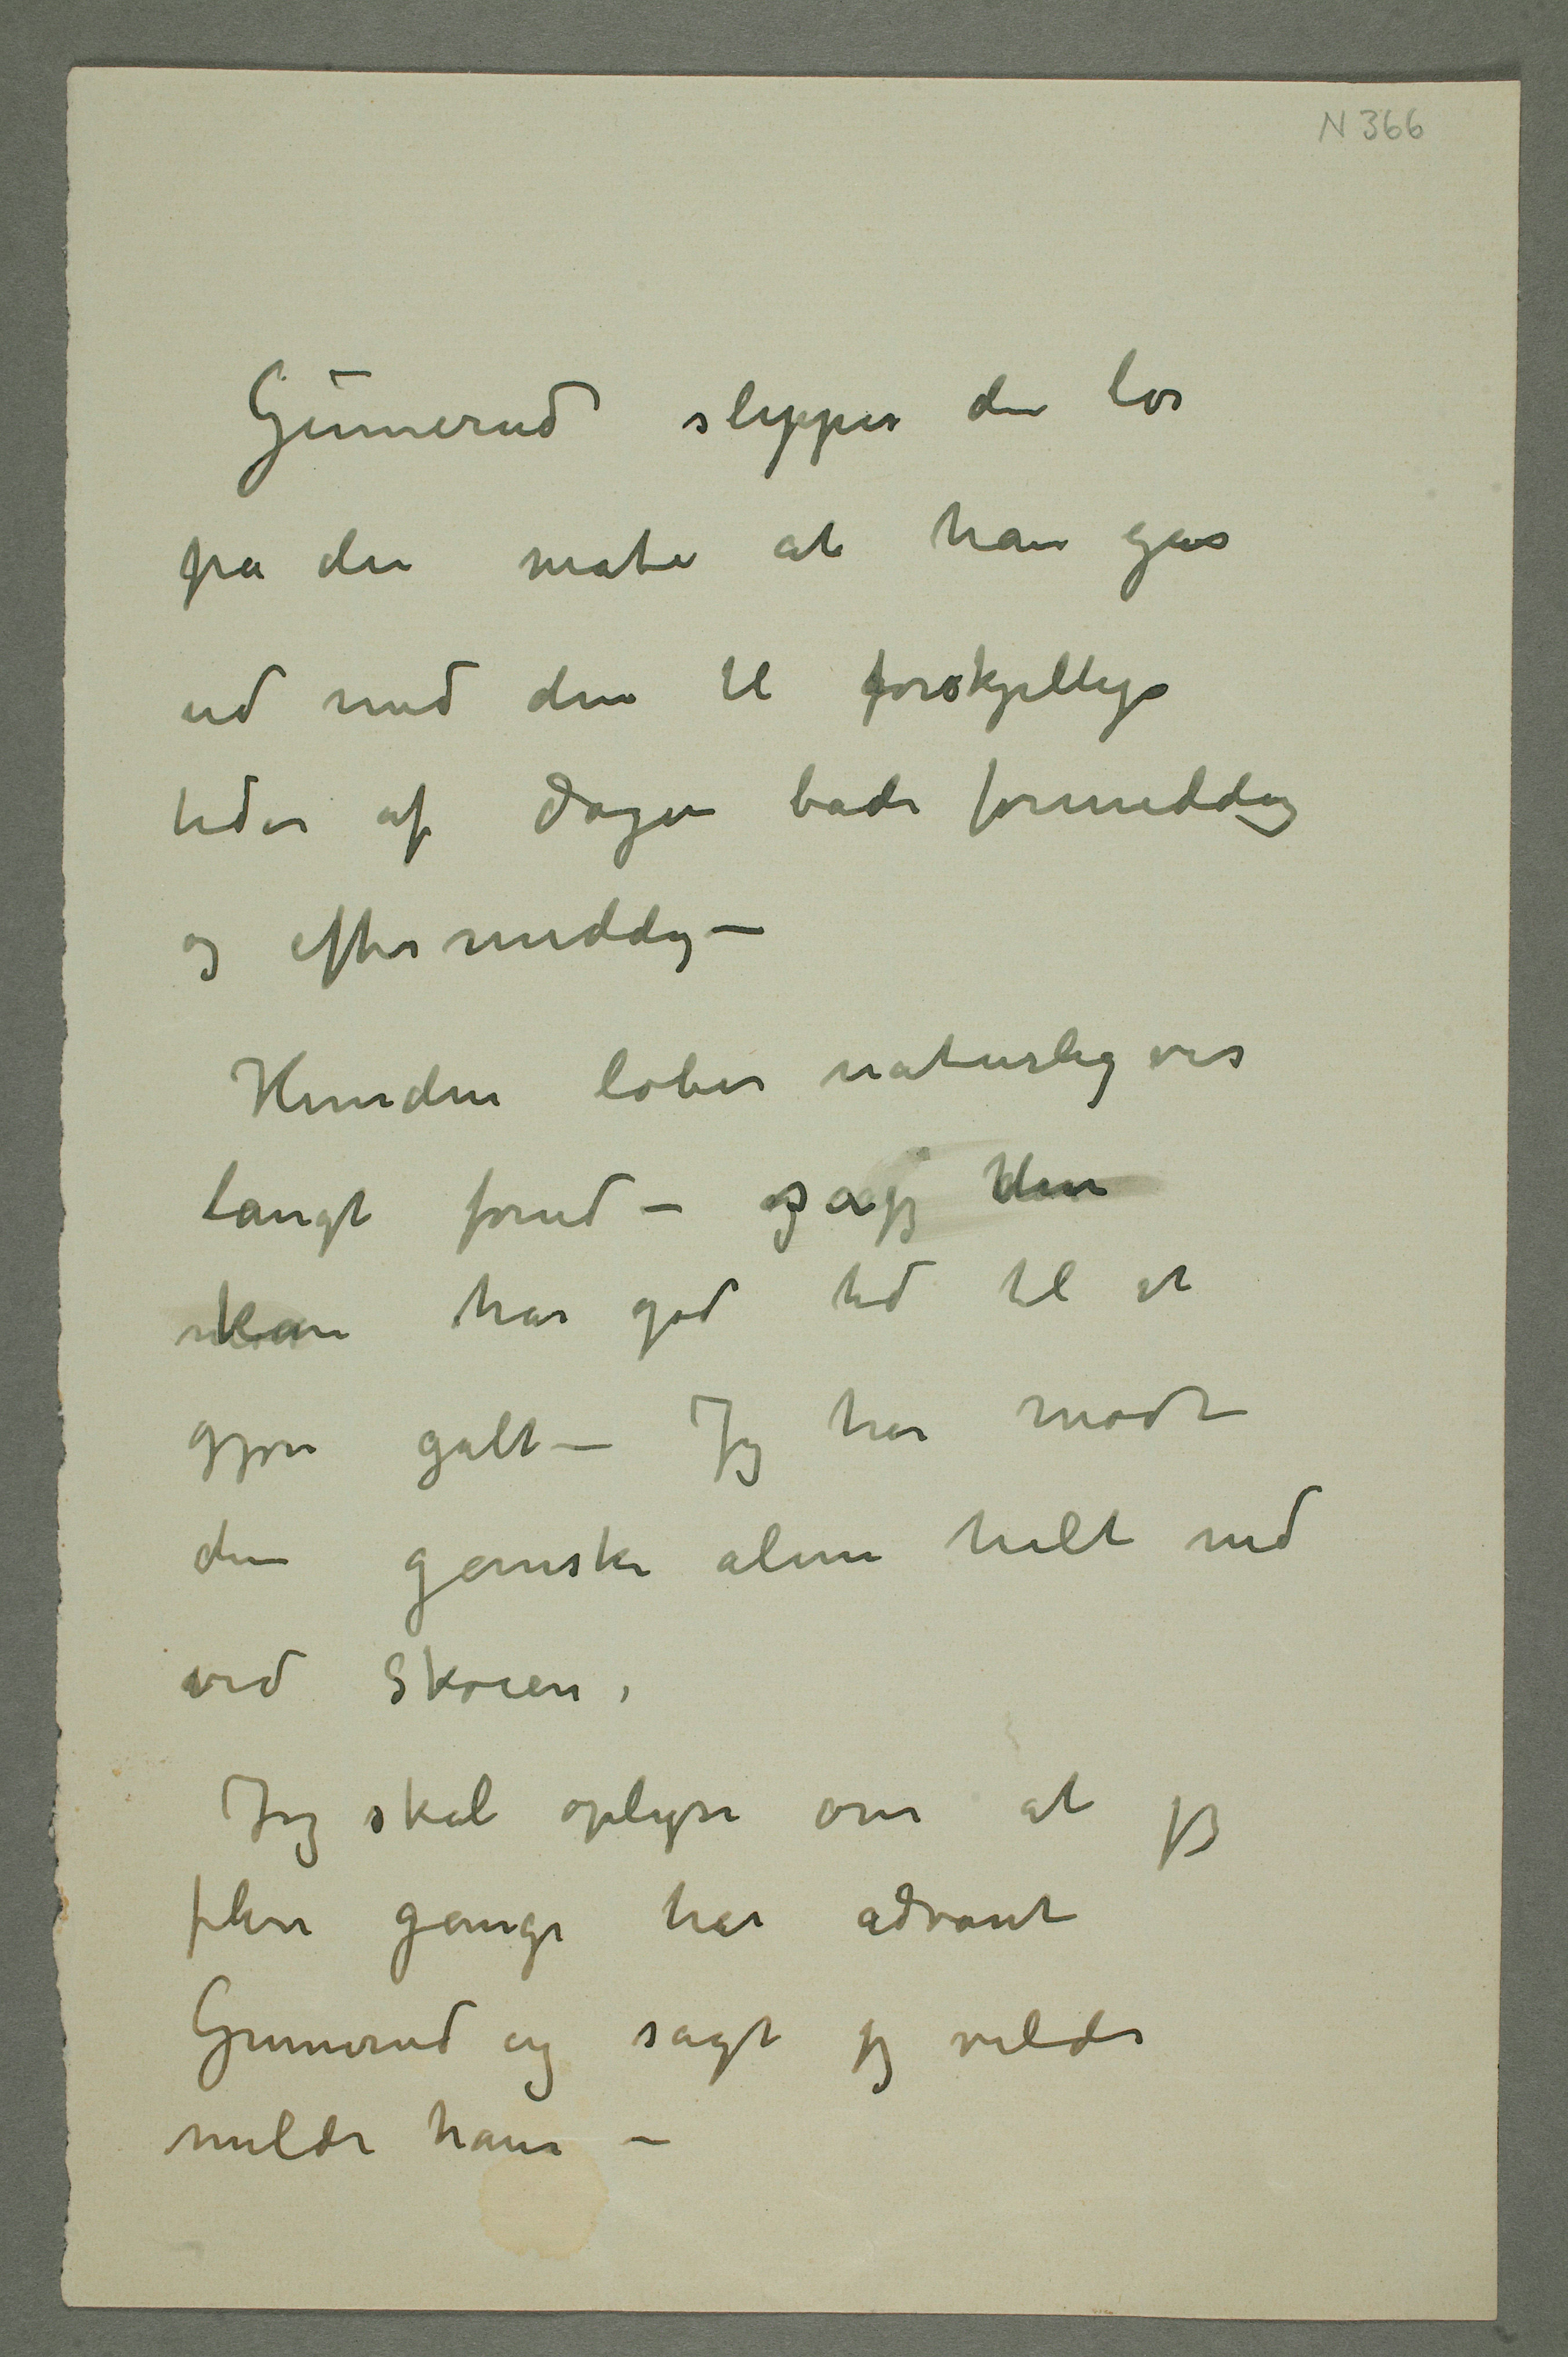 N 366
Gunnerud slipper den løs
på den måte at han går
ud med den til forskjellige
tider af dagen både formiddag
og eftermiddag –
Hunden løber naturligvis
langt forud – og den
kan har god tid til at
gjøre galt – Jeg har mødt
den ganske alene helt ned
ved Skøien.
Jeg skal oplyse om at jeg
flere gange har advart
Gunnerud og sagt jeg vilde
melde ham –